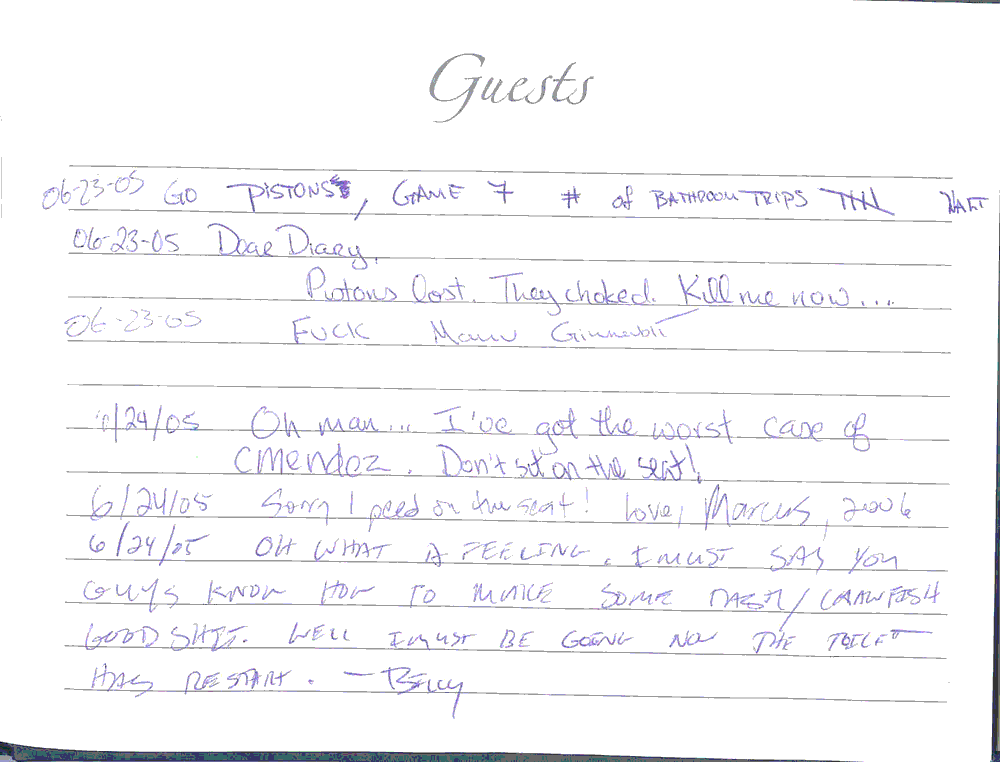 Guests
06-23-05 GO PISTONS, GAME 7 # of BATHROOM TRIPS
06-23-05 Dear Diary,
Pistons lost. They choked. Kill me now....
06-23-05 FUCK Manu Ginnobli
6/24/05 Oh man... I've got the worst case of
CMendez. Don't sit on the seat!
6/24/05 Sorry I peed on the seat! Love, Marcus, 2006
6/24/05 OH WHAT A FEELING. I MUST SAY YOU
GUYS KNOW HOW TO MAKE SOME CRAWFISH
GOOD SHIT. WELL I MUST BE GOING NOW THE TOILET
HAS RESTART. - Billy